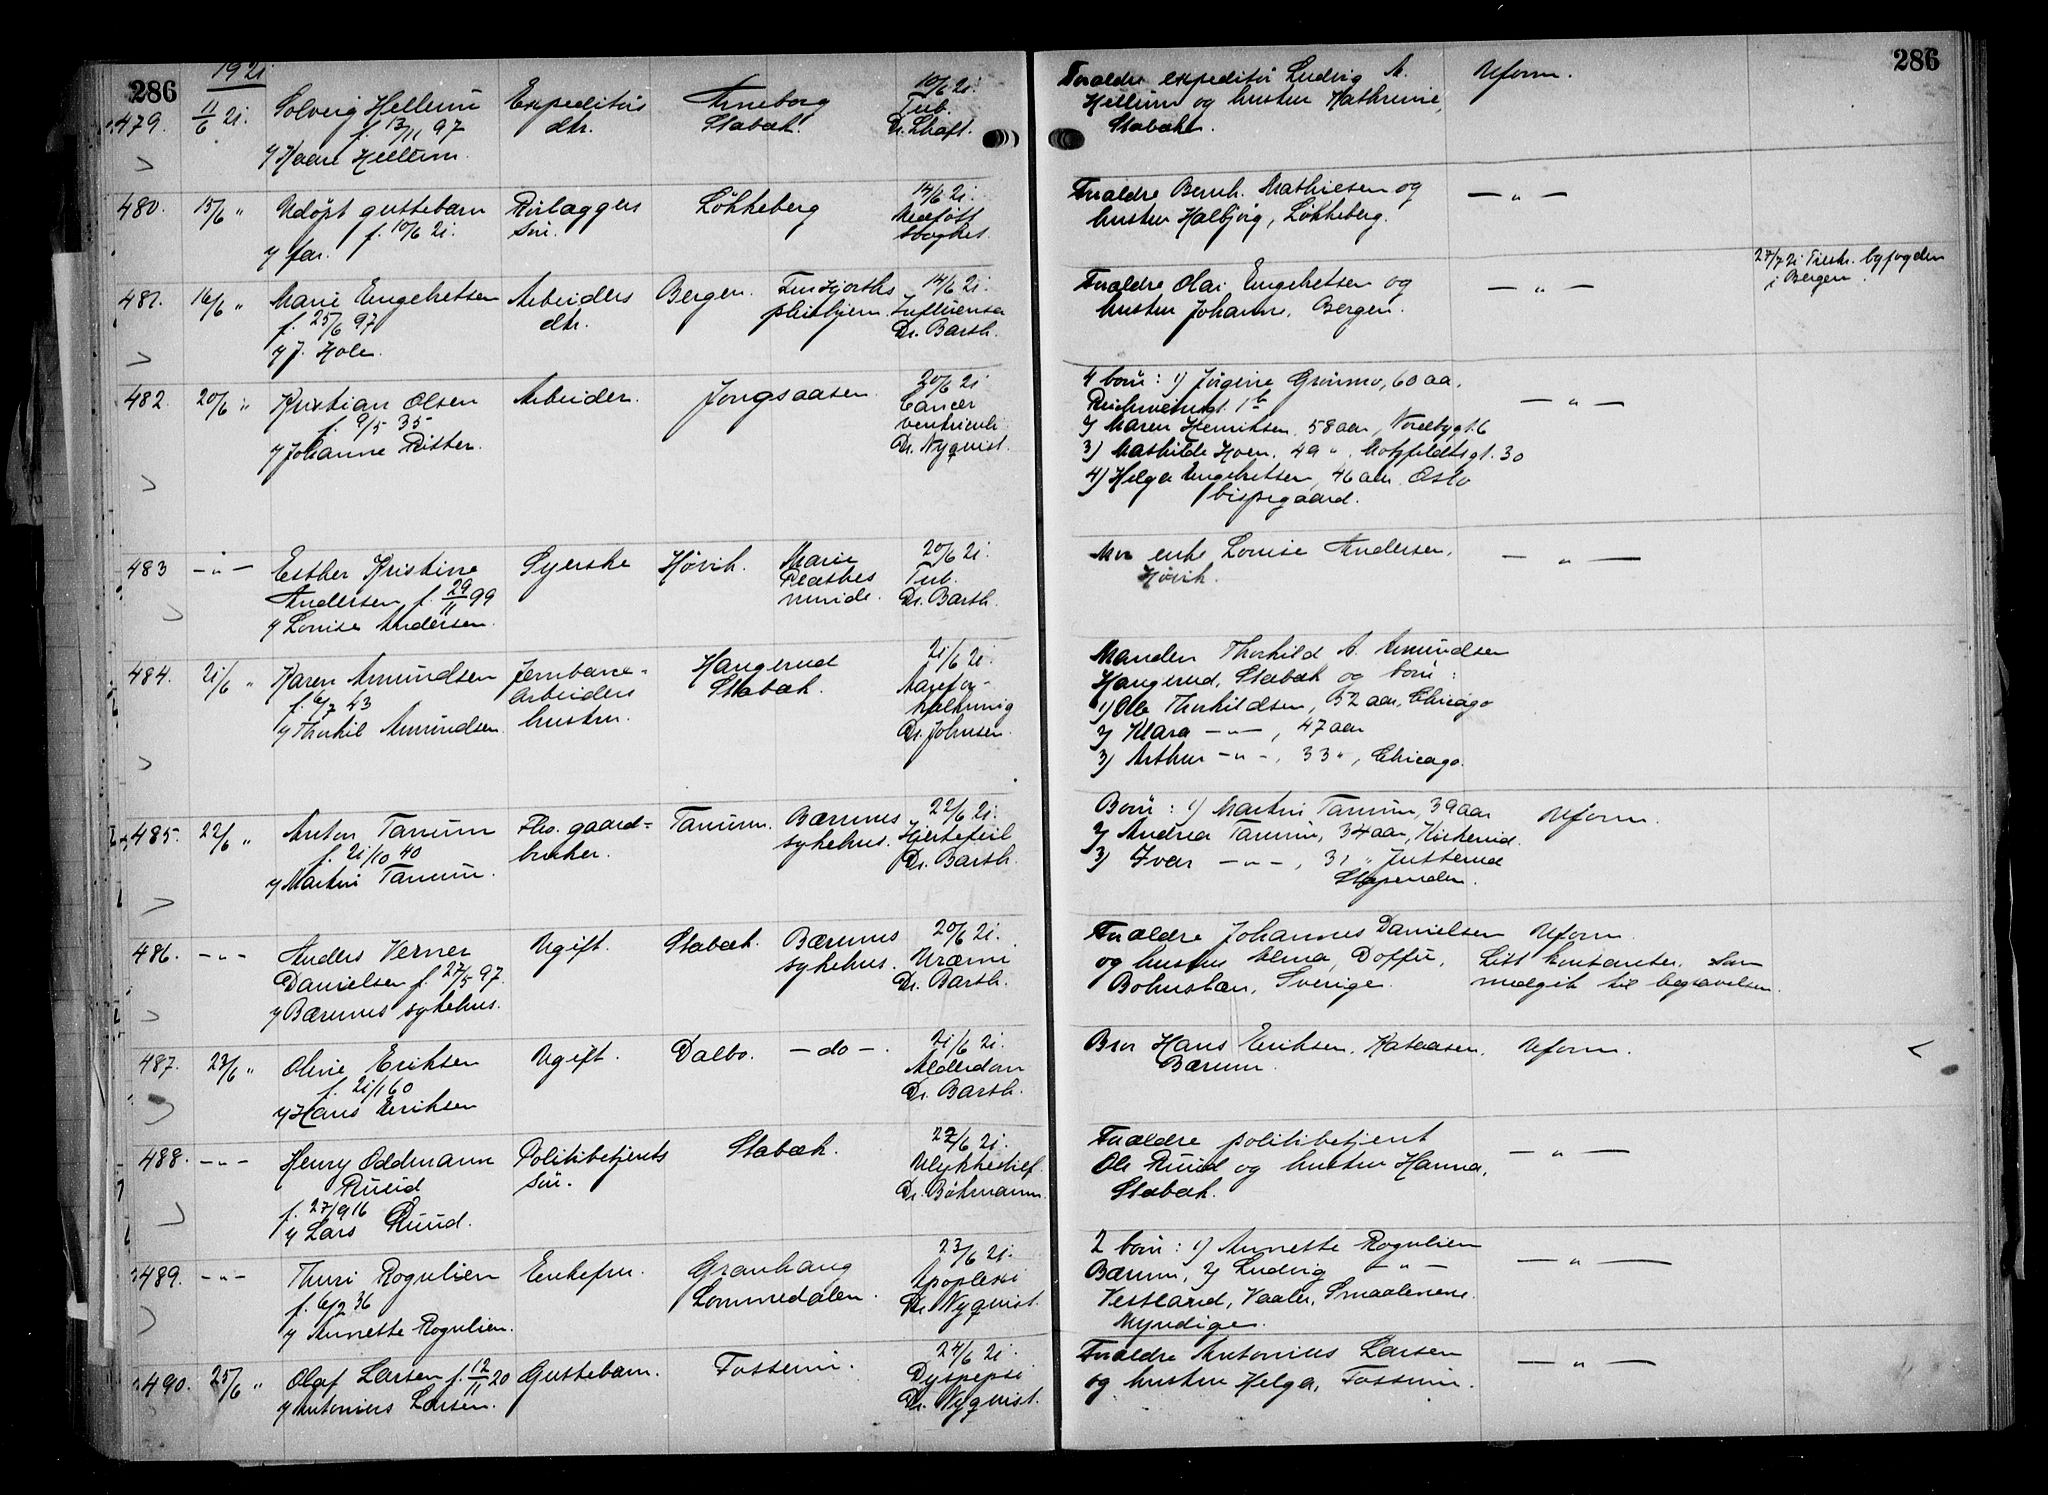 286
286
1921
479.
11/6 21.
Solveig Hellum
f. 13/11 97
v/ Kaare Hellum.
Expeditørs
dtr.
Arneborg
Stabæk.
10/6 21.
Tub.
Dr.
Forældre expeditør Ludvig A.
Hellum og hustru Kathrine,
Stabæk.
Uform.
480.
15/6 "
Udøpt guttebarn
f. 10/6 21.
v/ far.
Rørlæggers
søn.
Løkkeberg
14/6 21.
Medfødt
svaghet.
Forældre Bernh. Mathiesen og
hustru Halbjørg, Løkkeberg.
— " —
481.
16/6 "
Marie Engebretsen
f. 25/6 97
v/ J. Hole.
Arbeiders
dtr.
Bergen.
pleiehjem.
14/6 21.
Influensa
Dr. Barth.
Forældre Olai Engebretsen og
hustru Johanne, Bergen.
— " —
27/7 21 Tilskr. byfogden
i Bergen.
482.
20/6 "
Kristian Olsen
f. 9/5 35
v/ Johanne Ritter.
Arbeider.
Jongsaasen.
20/6 21
Cancer
ventriculi
Dr. Nyquist.
4 børn: 1) Jørgine Grønmo, 60 aa,
1 b
2) Maren Henriksen, 58 aar, Nordbygt. 6
3) Mathilde Hoen, 49 ", Motzfeldtsgt. 30
4) Helga Engebretsen, 46 aar. Oslo
bispegaard.
— " —
483
— " —
Esther Kristine
Andersen f. 29/11 99
v/ Louise Andersen.
Syerske
Høvik.
Marie
Plathes
minde.
20/6 21.
Tub.
Dr. Barth.
Mor enke Louise Andersen,
Høvik.
— " —
484.
21/6 "
Karen Amundsen
f. 6/7 43
v/ Thorkil Amundsen.
Jernbane-
arbeiders
hustru.
Haugerud
Stabæk.
21/6 21.
Aarefor-
kalkning
Dr. Johnsen.
Manden Thorkild A. Amundsen
Haugerud, Stabæk og børn:
1) Ole Thorkildsen, 52 aar, Chicago
2) Klara — " —, 47 aar
3) Arthur — " —, 33 ", Chicago.
485.
22/6 "
Anton Tanum
f. 21/10 40
v/ Martin Tanum.
Fho. gaard-
bruker.
Tanum.
Bærums
sykehus.
22/6 21.
Hjertefeil
Dr. Barth.
Børn: 1) Martin Tanum, 39 aar
2) Andrea Tanum, 34 aar, Kirkerud.
3) Ivar — " —, 31 " Jutterud
Slependen.
Uform.
486.
— " —
Anders Verner
Danielsen f. 27/5 97.
v/ Bærums sykehus.
Ugift.
Stabæk.
Bærums
sykehus.
20/6 21.
Uræmi
Dr. Barth.
Forældre Johannes Danielsen
og hustru Alma,
Bohuslän, Sverige.
Uform.
Litt kontanter, som
medgik til begravelsen.
487.
23/6 "
Oline Eriksen
f. 21/1 60
v/ Hans Eriksen
Ugift.
Dalbo.
— do —.
21/6 21.
Alderdom
Dr. Barth.
Bror Hans Eriksen,
Bærum.
Uform.
488.
— " —
Henry Oddmann
Ruud
f. 27/9 16
v/ Lars Ruud.
Politibetjents
søn.
Stabæk.
22/6 21.
Ulykkestilf.
Dr. Bøhmann.
Forældre politibetjent
Ole Ruud og hustru Hanna,
Stabæk.
— " —
489.
— " —
Thuri Rognlien
f. 6/2 36
v/ Annette Rognlien.
Enkefru.
Granhaug
Lommedalen.
23/6 21.
Apoplexi
Dr. Nyquist.
2 børn: 1) Annette Rognlien
Bærum, 2) Ludvig — " —
Vestland, Vaaler, Smaalenene.
Myndige.
— " —
490.
25/6 "
Olaf Larsen f. 12/11 20
v/ Antonius Larsen.
Guttebarn.
Fossum.
24/6 21.
Dyspepsi
Dr. Nyquist.
Forældre Antonius Larsen
og hustru Helga, Fossum.
— " —